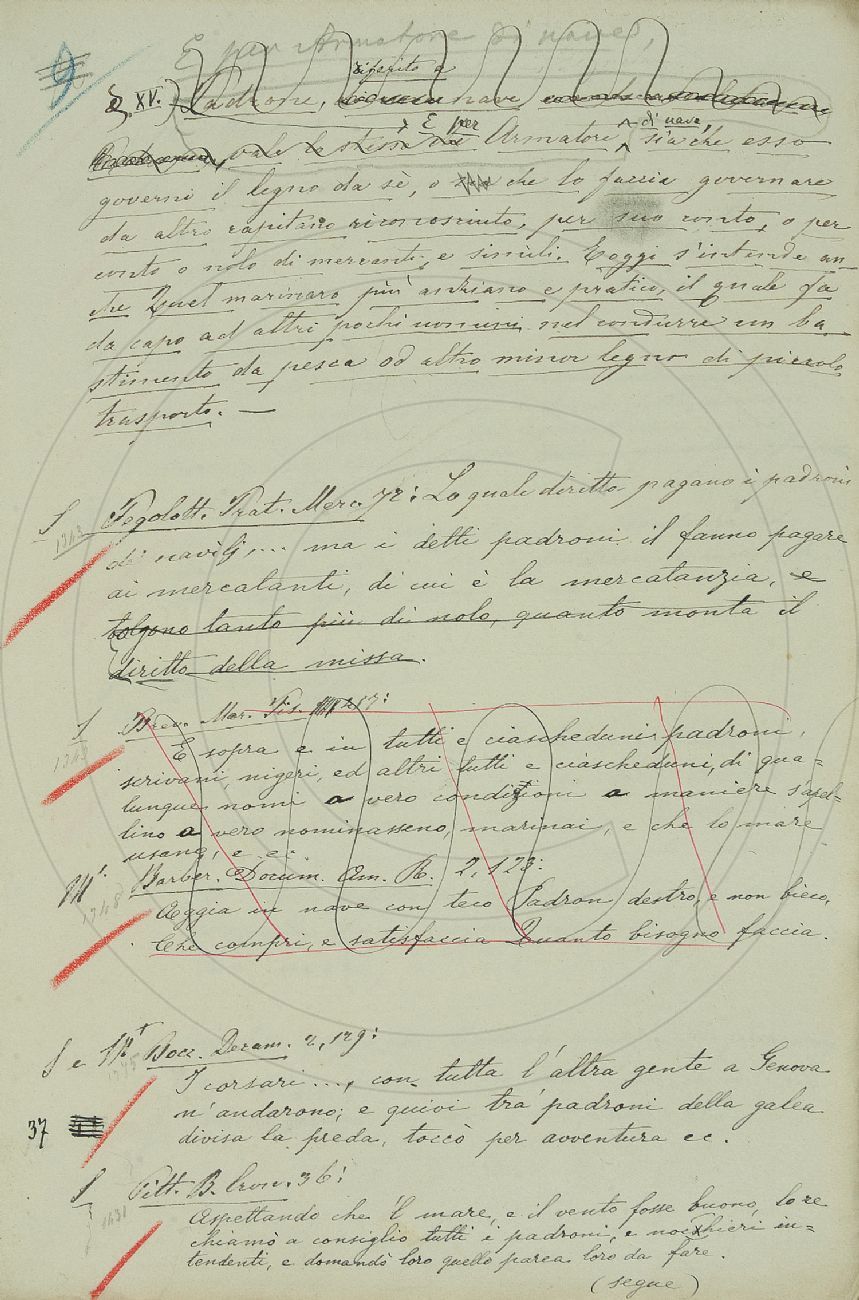 9
E per Armatore di nave,
§. XV. Padrone, riferito a nave
vale lo stesso che E per Armatore di nave, sia che esso
governi il legno da sè, o che lo faccia governare
da altro capitano riconosciuto, per suo conto, o per
conto o nolo di mercanti e simili. E oggi s'intende an-
che Quel marinaro più anziano e pratico, il quale fa
da capo ad altri pochi uomini nel condurre un ba-
stimento da pesca od altro minor legno di piccolo
trasporto. —
S Pegolott. Prat. Merc. 72: Lo quale diritto pagano i padroni
1343
di navilj,... ma i detti padroni il fanno pagare
ai mercatanti, di cui è la mercatanzia, e
tolgono tanto più di nolo, quanto monta il
diritto della missa.
S Brev. Mar. Pis. 217:
E sopra e in tutti e ciascheduni padroni,
scrivani, nigeri, ed altri tutti e ciascheduni, di qua-
lunque nomi o vero condizioni o maniere s'apel-
lino o vero nominasseno, marinai, e che lo mare
usano, e ec.
Mt. Barber. Docum. Am. R. 2, 128:
1348
Aggia in nave con teco Padron destro, e non bieco,
Che compri, e satisfaccia Quanto bisogno faccia.
S e Mt Bocc. Decam. 2, 129:
I corsari..., con tutta l'altra gente a Genova
n'andarono; e quivi tra' padroni della galea
37
divisa la preda, toccò per avventura ec.
S Pitt. B. Cron. 36:
1431
Aspettando che 'l mare, e il vento fosse buono, lo re
chiamò a consiglio tutti i padroni, e nocchieri in-
tendenti, e domandò loro quello parea loro da fare.
(segue)